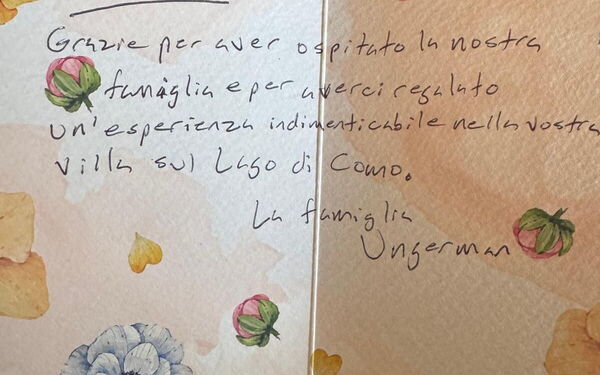 Grazie per aver ospitato la nostra
famiglia e per averci regalato
un'esperienza indimenticabile nella vostra
villa sul Lago di Como.
La famiglia
Ungerman